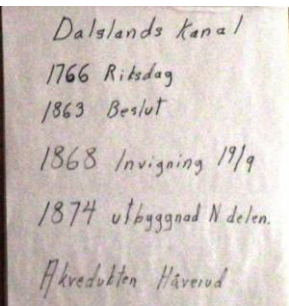 Dalslands Kanal
1766 Riksdag
1863 Beslut
1868 Invigning 19/9
1874 utbyggnad N delen.
Akvedukten Håverud